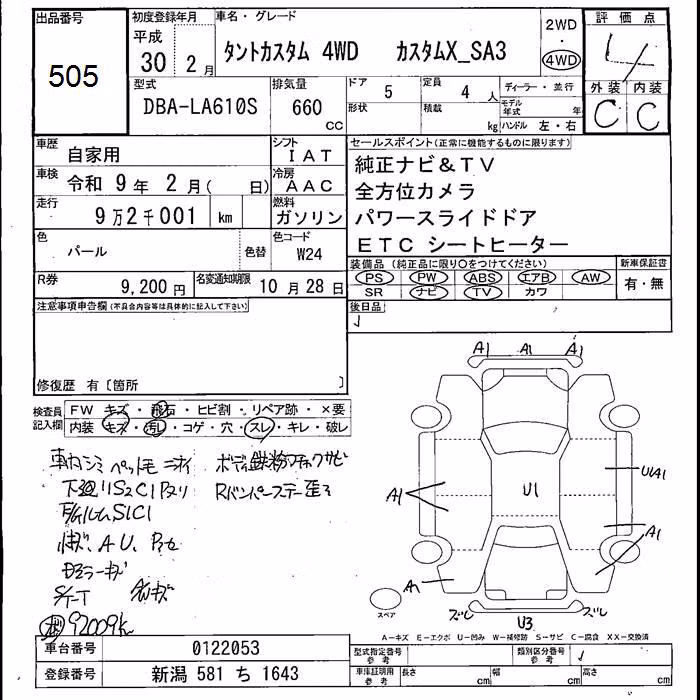 出品番号
505
初度登録年月
平成
30 年 2 月
車名・グレード
タントカスタム 4WD カスタムX_SA3
2WD
・
4WD
評価点
4
外装 内装
C C
型式
DBA-LA610S
排気量
660
cc
ドア
5
形状
定員
4 人
積載
kg
ディーラー・並行
モデル年式 年
ハンドル 左・右
車歴
自家用
シフト
IAT
車検
令和 9 年 2 月( 日)
冷房
AAC
走行
9万2千001 km
燃料
ガソリン
色
パール
色替
色コード
W24
R券
9,200 円
名変通知期限
10 月 28 日
セールスポイント(正常に機能するものに限ります)
純正ナビ&TV
全方位カメラ
パワースライドドア
ETC シートヒーター
装備品(純正品に限り○をつけてください)
PS PW ABS エアB AW
SR ナビ TV カワ
新車保証書
有・無
後日品
注意事項申告欄(不具合内容等は具体的に記入して下さい)
修復歴 有〔箇所 〕
検査員
記入欄
FW キズ・飛石・ヒビ割・リペア跡・×要
内装 キズ・汚レ・コゲ・穴・スレ・キレ・破レ
車内シミ ペット毛 ニオイ ボディ鉄粉
下廻り S2C1
S1C1
A U
92009k
A1 A1 A1
A1
U1
U1A1
A1
A1
ズレ U3 ズレ
スペア
A-キズ E-エクボ U-凹み W-補修跡 S-サビ C-腐食 XX-交換済
車台番号
0122053
登録番号
新潟 581 ち 1643
型式指定番号
参考
類別区分番号
参考
車庫証明用
参考
長さ cm
幅 cm
高さ cm